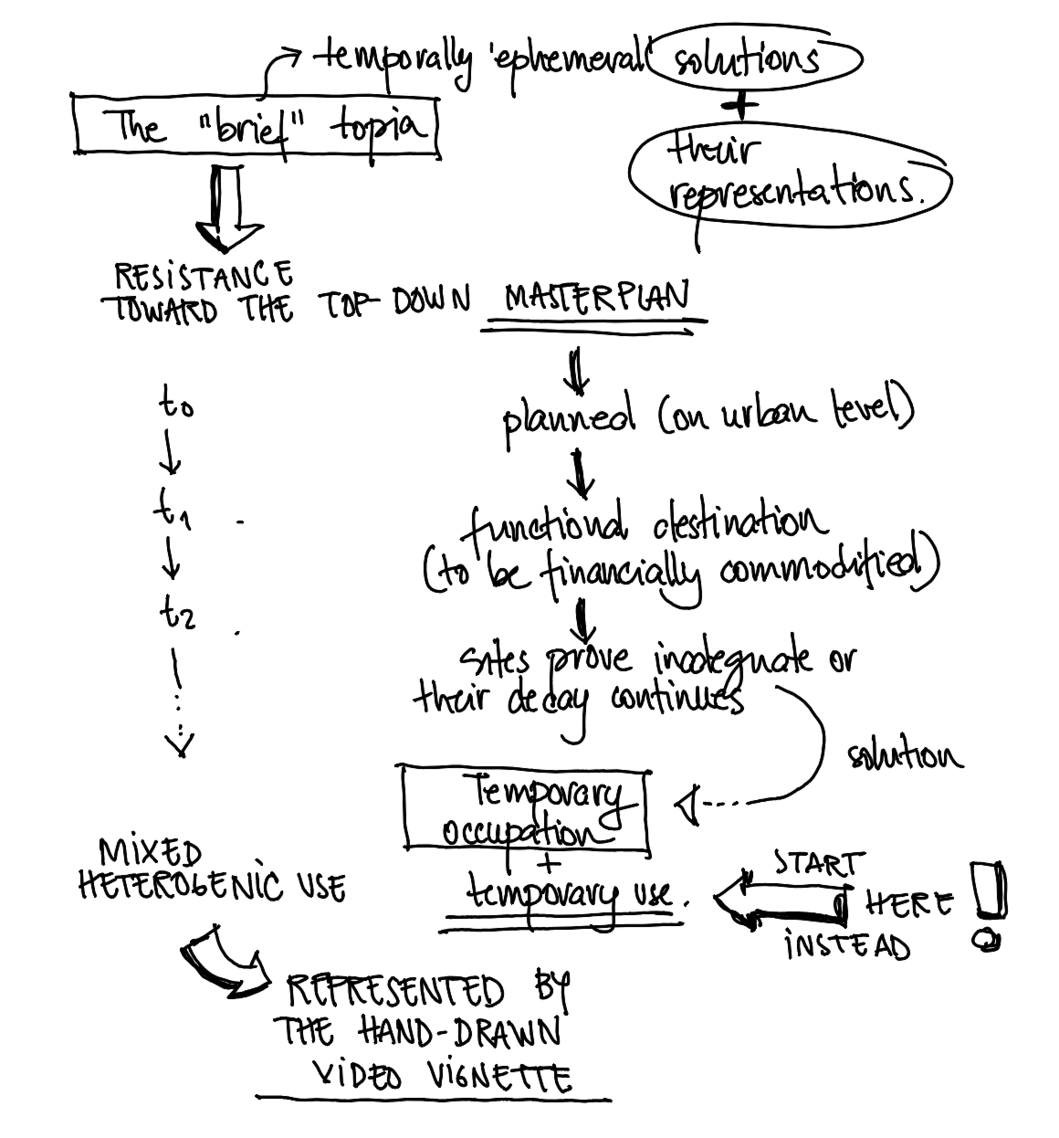 temporally 'ephemeral' solutions
+
The "brief" topia
their
representations.
RESISTANCE
TOWARD THE TOP-DOWN MASTERPLAN
planned (on urban level)
functional destination
(to be financially commodified)
sites prove inadequate or
their decay continues
solution
Temporary
occupation
+
temporary use.
START
HERE !
INSTEAD
t0
t1
t2
MIXED
HETEROGENIC USE
REPRESENTED BY
THE HAND-DRAWN
VIDEO VIGNETTE